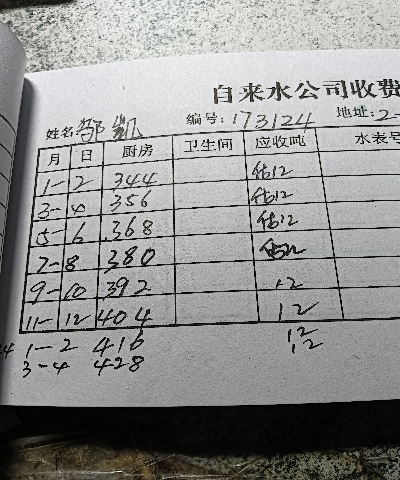 自来水公司收费
姓名 邹凯 编号:173124 地址:2-
月 日 厨房 卫生间 应收吨 水表号
1-2 344 估12
3-4 356 估12
5-6 368 估12
7-8 380 估12
9-10 392 12
11-12 404 12
24 1-2 416 12
3-4 428 12